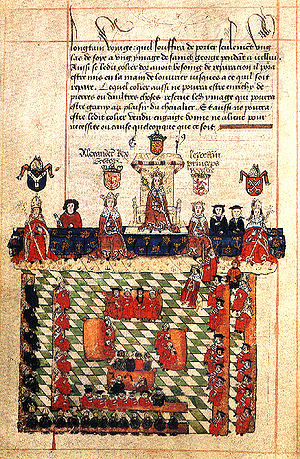 longtain voyage quil souffira de porter seulement ung
las de soye a ung ymage de sainct george pendāt a icellui
Aussi se ledit colier avoit besoing de reparacion il pora
estre mis en la main de louurier iusques a ce quil soit
repare. Lequel colier aussi ne pourra estre enrichy de
pierres ou daultres choses reserue les ymage qui pourra
estre garny au plaisir du chevalier. Et aussi ne pourra
estre ledit colier vendu engaige donne ne aliene pour
necessite ou cause quelconque que ce soit
Alexander Rex
princeps